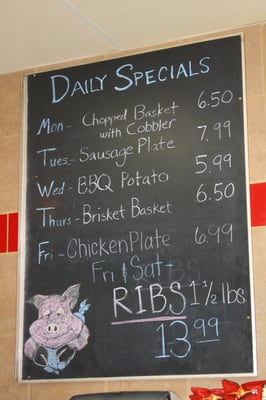 DAILY SPECIALS
Mon- Chopped Basket 6.50
with Cobbler
Tues.- Sausage Plate 7.99
Wed- BBQ Potato 5.99
Thurs- Brisket Basket 6.50
Fri- Chicken Plate 6.99
Fri & Sat-
RIBS 1 1/2 lbs.
13.99